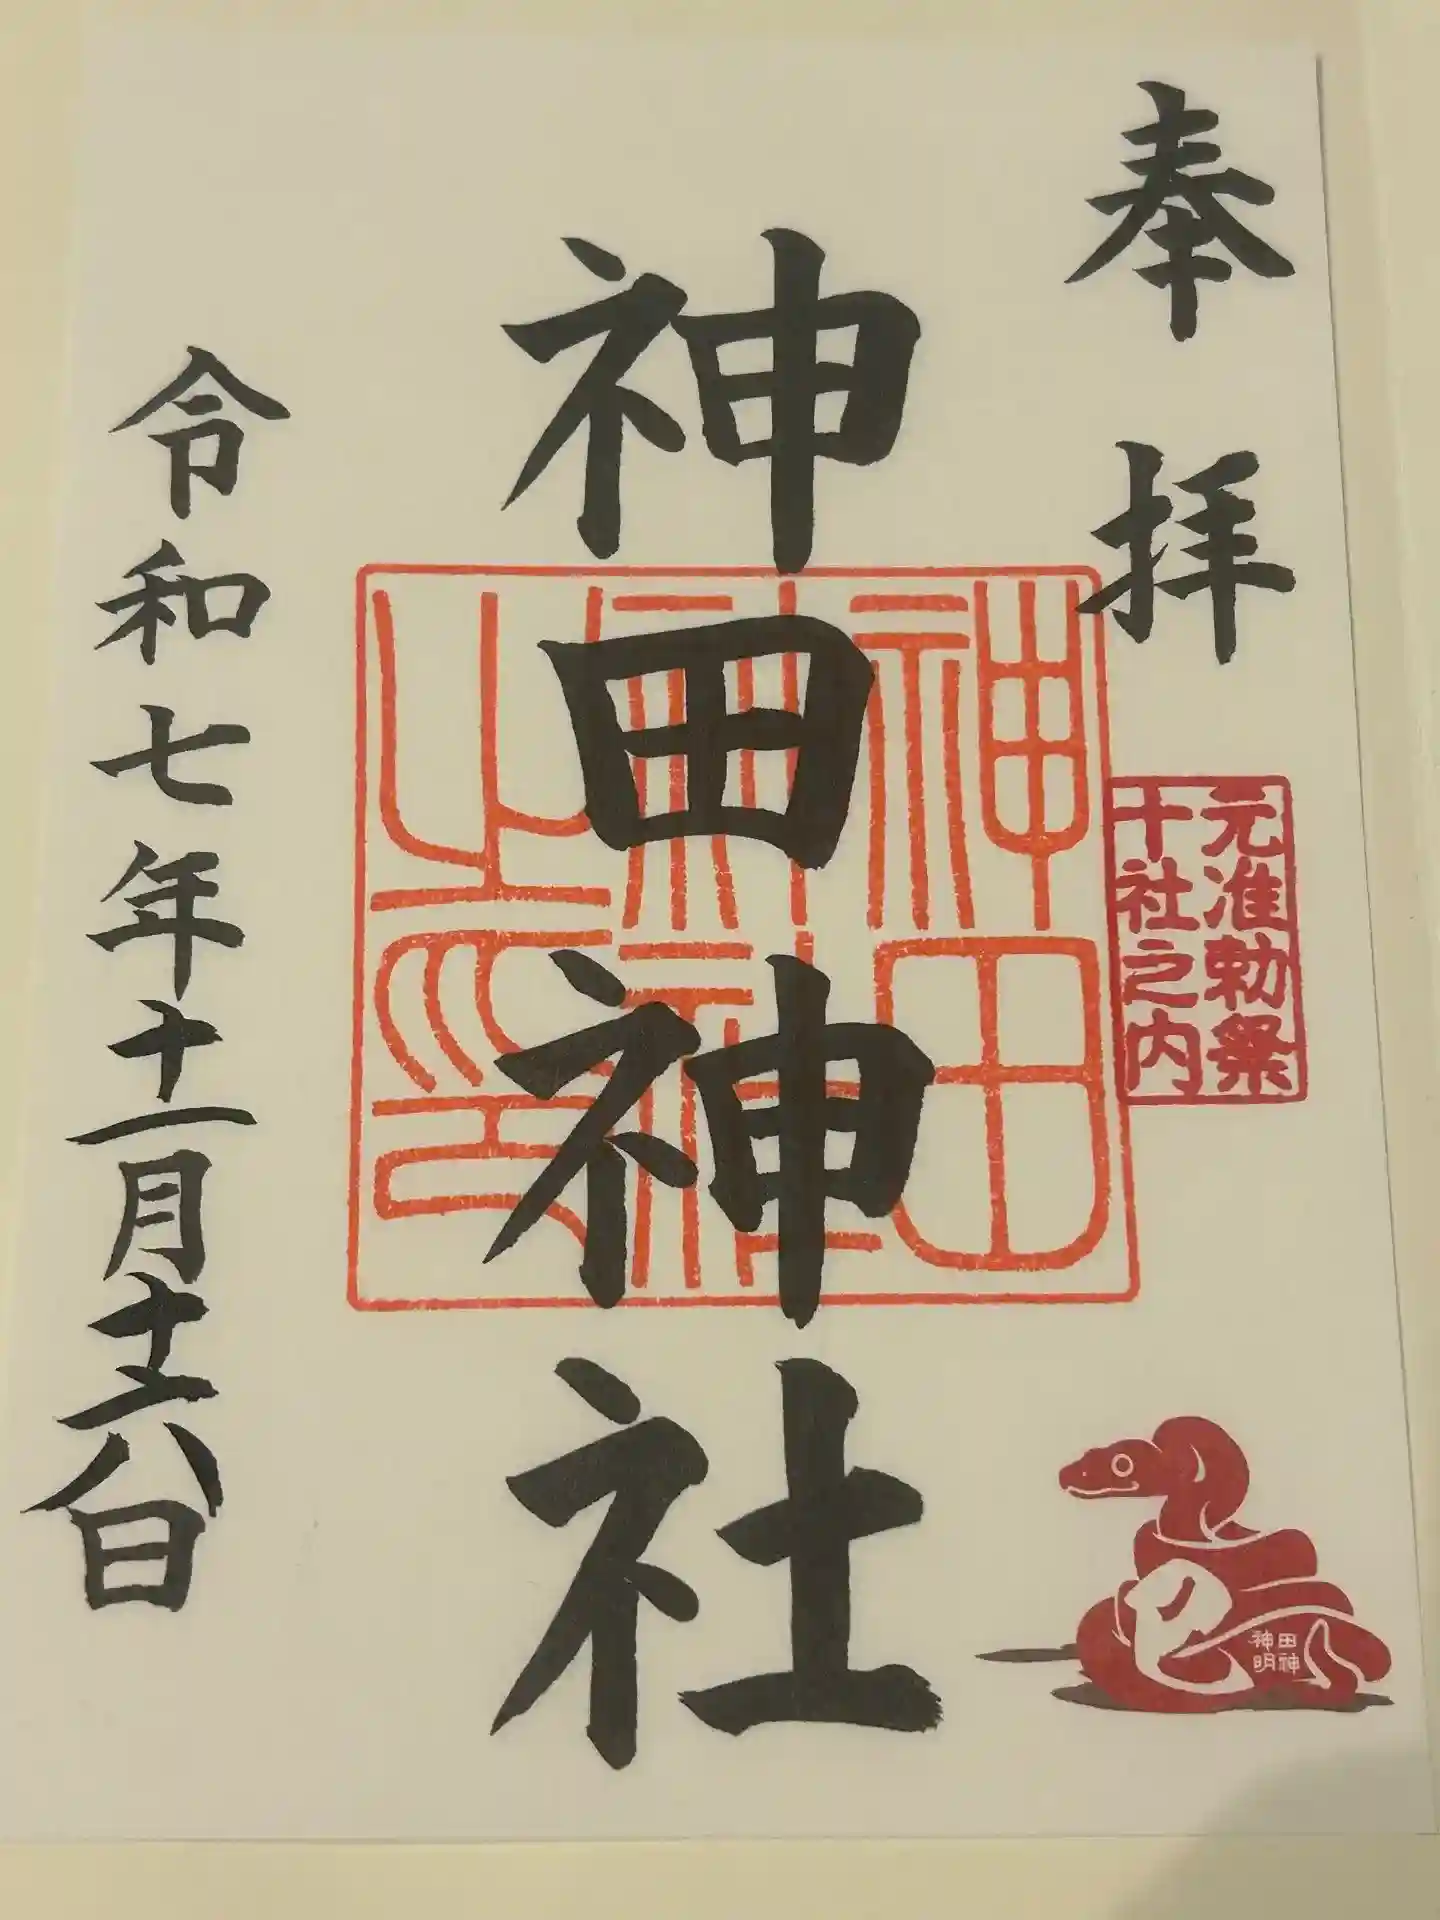 奉拝
元准勅祭
十社之内
神田神社
神田
神社
之印
令和七年十一月十六日
巳
神田
明神